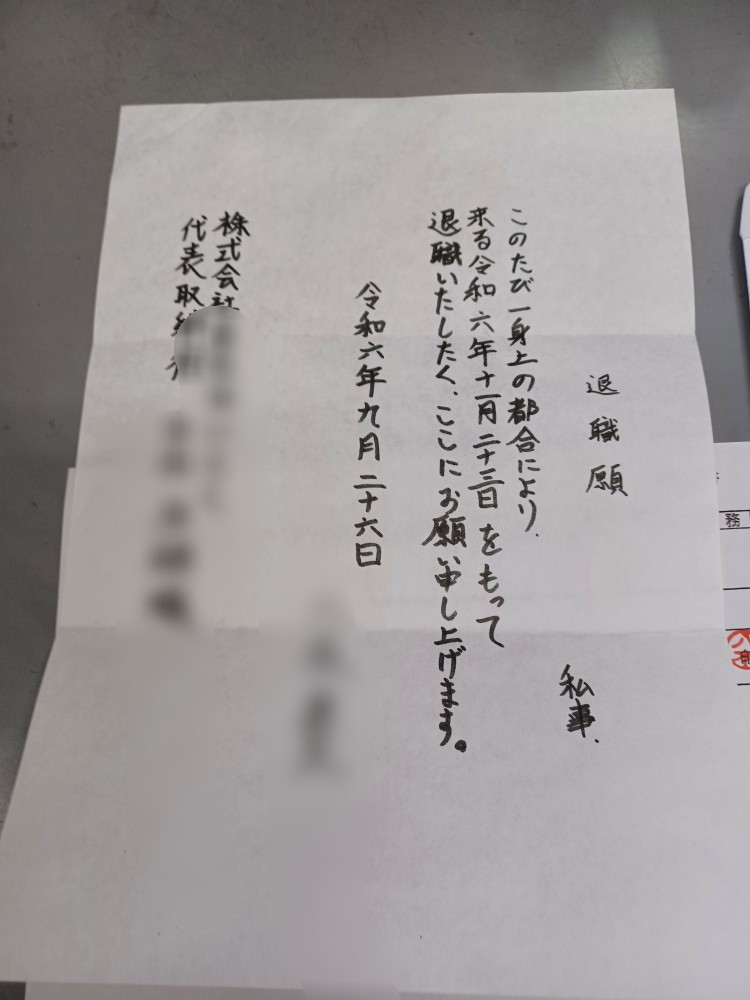 退職願
私事、
このたび一身上の都合により、
来る令和六年十一月二十三日をもって
退職いたしたく、ここにお願い申し上げます。
令和六年九月二十六日
株式会社
代表取締役
務